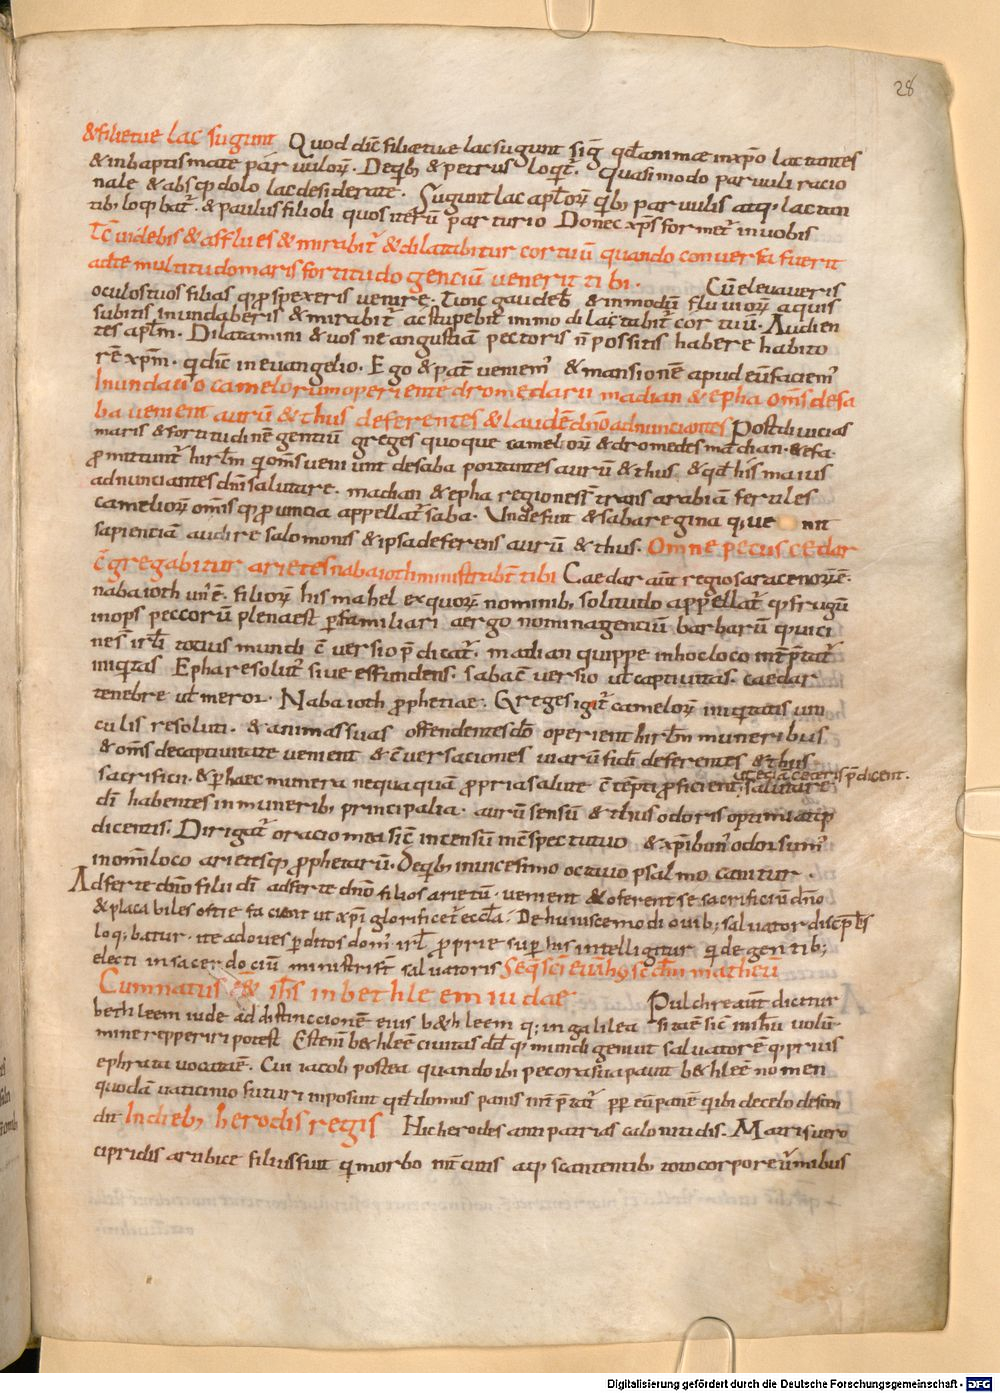 28
& filię tuę lac sugunt Quod dic̄ filiætuæ lac sugunt sig̅ qd̅ animæ in xp̅o lactantes
& in baptismate paruulorꝝ. De qb; & petrus loqt̅. Quasi modo paruuli racio
nale & absq; dolo lac desiderate. Sugunt lac apl̅orꝝ qb; paruulis atq; lactan
tib; loqbat̅. & paulus filioli quos iterū parturio Donec xp̅s formet̅ in uobis
Tc̄ uidebis & afflues & mirabit̅ & dilatabitur cor tuū quando conuersa fuerit
ad te multitudo maris fortitudo genciū uenerit tibi. Cū eleuaueris
oculos tuos filias q; ꝓspexeris uenire. Tunc gaudeb̅ & inmodū fluuiorꝝ aquis
subitis inundaberis & mirabit̅ ac stupebit immo dilactabit̅ cor tuū. Audien
tes apl̅m. Dilatamini & uos ne angustiam pectoris n̄ possitis habere habito
rē xp̅m. qi dic̄ in euangelio. Ego & pat̅ ueniem̅ & mansionē apud eū faciem̅
Inundacio camelorum operient te dromedarii madian & epha om̅s de sa
ba uenient aurū & thus deferentes & laudē dn̅o adnunciantes Post diuicias
maris & fortitudinē gentiū greges quoque camelorꝝ & dromedes madian. & efa.
ꝓmittunt̅ hirl̅m qi om̅s ueniunt de saba portantes aurū & thus & qd̅ his maius
adnunciantes dn̅i salutare. madian & epha regiones st̅ trans arabiā fertiles
cameliorꝝ om̅is q; ꝓuincia appellat̅ saba. Unde fuit & saba regina q; ue nit
sapienciā audire salomonis & ipsa deferens aurū & thus. Omne pecus cedar
c̄gregabitur arietes nabaioth ministrabt̅ tibi Caedar aut̅ regio saracenorꝝ ē.
nabaioth un̅ ē. filiorꝝ hismahel ex quorꝝ nominib; solitudo appellat̅ q; frugū
inops peccorū plena est ꝑ familiari aergo nomina genciū barbarū q; uici
nes̅ irl̅i totius mundi c̄uersio p̄dicat̅. madian quippe in hoc loco int̅p̄tat̅
iniq̅tas Epha resolut̅ siue effundens. saba c̄uersio ut̅ captiuitas. caedar
tenebre ut̅ meror. Nabaioth ꝓphetiae. Greges igit̅ camelorꝝ iniquitatis uin
culis resoluti. & animas suas offendentes dō operient hirl̅m muneribus
& om̅s de captiuitate uenient & c̄uersaciones uiarū fid̅i deferentes & thus
sacrificii. & ꝑ haec munera nequaquā ꝓpria salute c̄tēpti ꝓficient, salutare ut etiā ceteris p̄dicent.
dī habentes in munerib; principalia. aurū sensū & thus odoris optimi atq;
dicentis. Dirigat̅ oracio mea sic̄ incensū in c̄spectu tuo & xp̅i bon̅ odor sum̅
in om̅i loco arietesq; ꝓphetarū. De qb; in uicesimo octauo psalmo canitur.
Adferte dn̅o filii dī adferte dn̅o filios arietū. uenient & oferent se sacrificiū dn̅o
& placabiles ostie faciant ut xp̅i glorificet̅ eccl̅a. De huiuscemodi ouib; saluator discip̄l̅es
loq; batur. ite ad oues ꝑditos dom̅ irl̅ ꝓprie suꝑ his intelligitur qi de gentib;
electi in sacerdociū ministrist̅ saluatoris Seq̅ sc̅i euan̅g̅ sc̅dm matheū
Cum natus ēē& ih̅s in bethleem iudae Pulchre aut̅ dicitur
bethleem iude ad distinccionē eius b&hleem q; in galilea sita ē sic̄ in ih̅u uolu
mine repperiri potest Est eni̅ b&hleē ciuitas dd̅ q; mundi genuit saluatorē q; prius
ephrata uocata ē. Cui iacob postea quando ibi pecora sua pauit b&hleē nomen
quodā uaticinio futuri inposuit qd̅ domus panis int̅p̄tat̅ ꝓp̅ eū panē qi ibi de celo descen
dit In dieb; herodis regis Hic herodes antipatris scalonitidis. Matris uero
cipridis arabice filius fuit qi morbo int̅cutis atq; scatentib; toto corpore u̅mibus
Digitalisierung gefördert durch die Deutsche Forschungsgemeinschaft - DFG